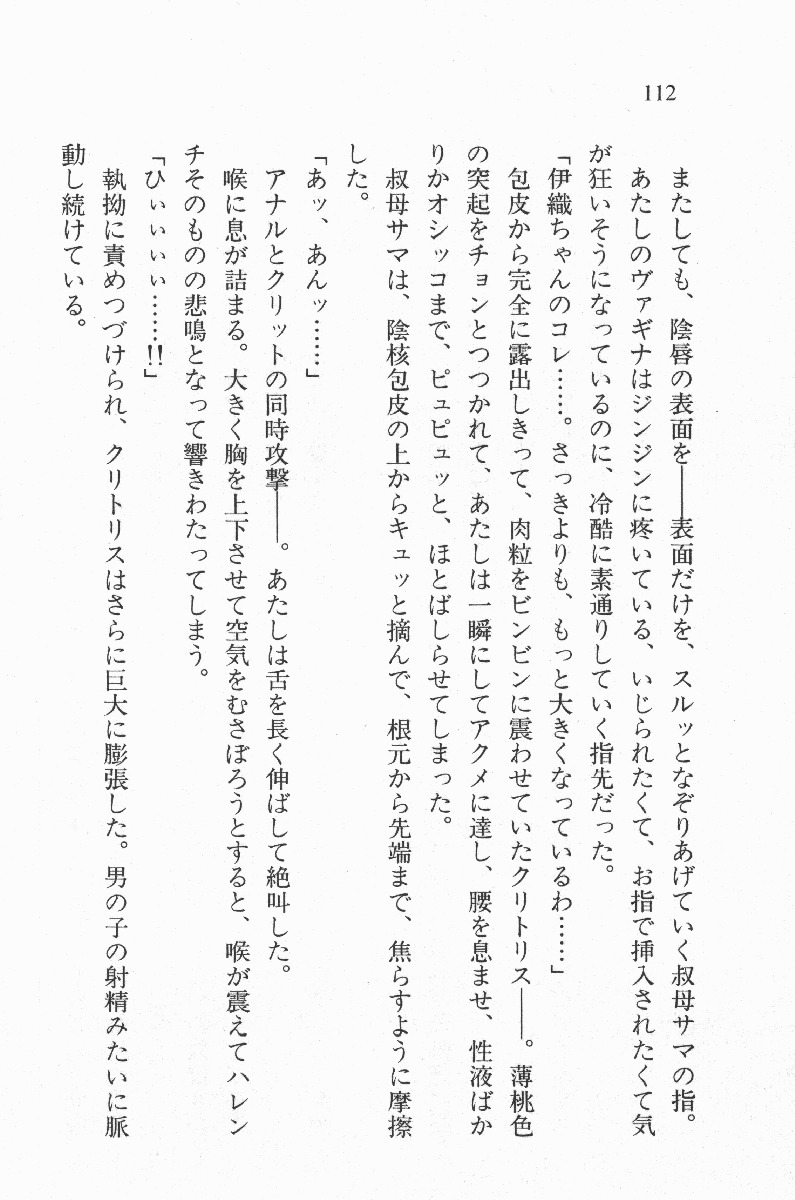 112
またしても、陰唇の表面を——表面だけを、スルッとなぞりあげていく叔母サマの指。
あたしのヴァギナはジンジンに疼いている、いじられたくて、お指で挿入されたくて気
が狂いそうになっているのに、冷酷に素通りしていく指先だった。
「伊織ちゃんのコレ……。さっきよりも、もっと大きくなっているわ……」
包皮から完全に露出しきって、肉粒をビンビンに震わせていたクリトリス——。薄桃色
の突起をチョンとつつかれて、あたしは一瞬にしてアクメに達し、腰を息ませ、性液ばか
りかオシッコまで、ピュピュッと、ほとばしらせてしまった。
叔母サマは、陰核包皮の上からキュッと摘んで、根元から先端まで、焦らすように摩擦
した。
「あッ、あんッ……」
アナルとクリットの同時攻撃——。あたしは舌を長く伸ばして絶叫した。
喉に息が詰まる。大きく胸を上下させて空気をむさぼろうとすると、喉が震えてハレン
チそのものの悲鳴となって響きわたってしまう。
「ひぃぃぃぃ……!!」
執拗に責めつづけられ、クリトリスはさらに巨大に膨張した。男の子の射精みたいに脈
動し続けている。